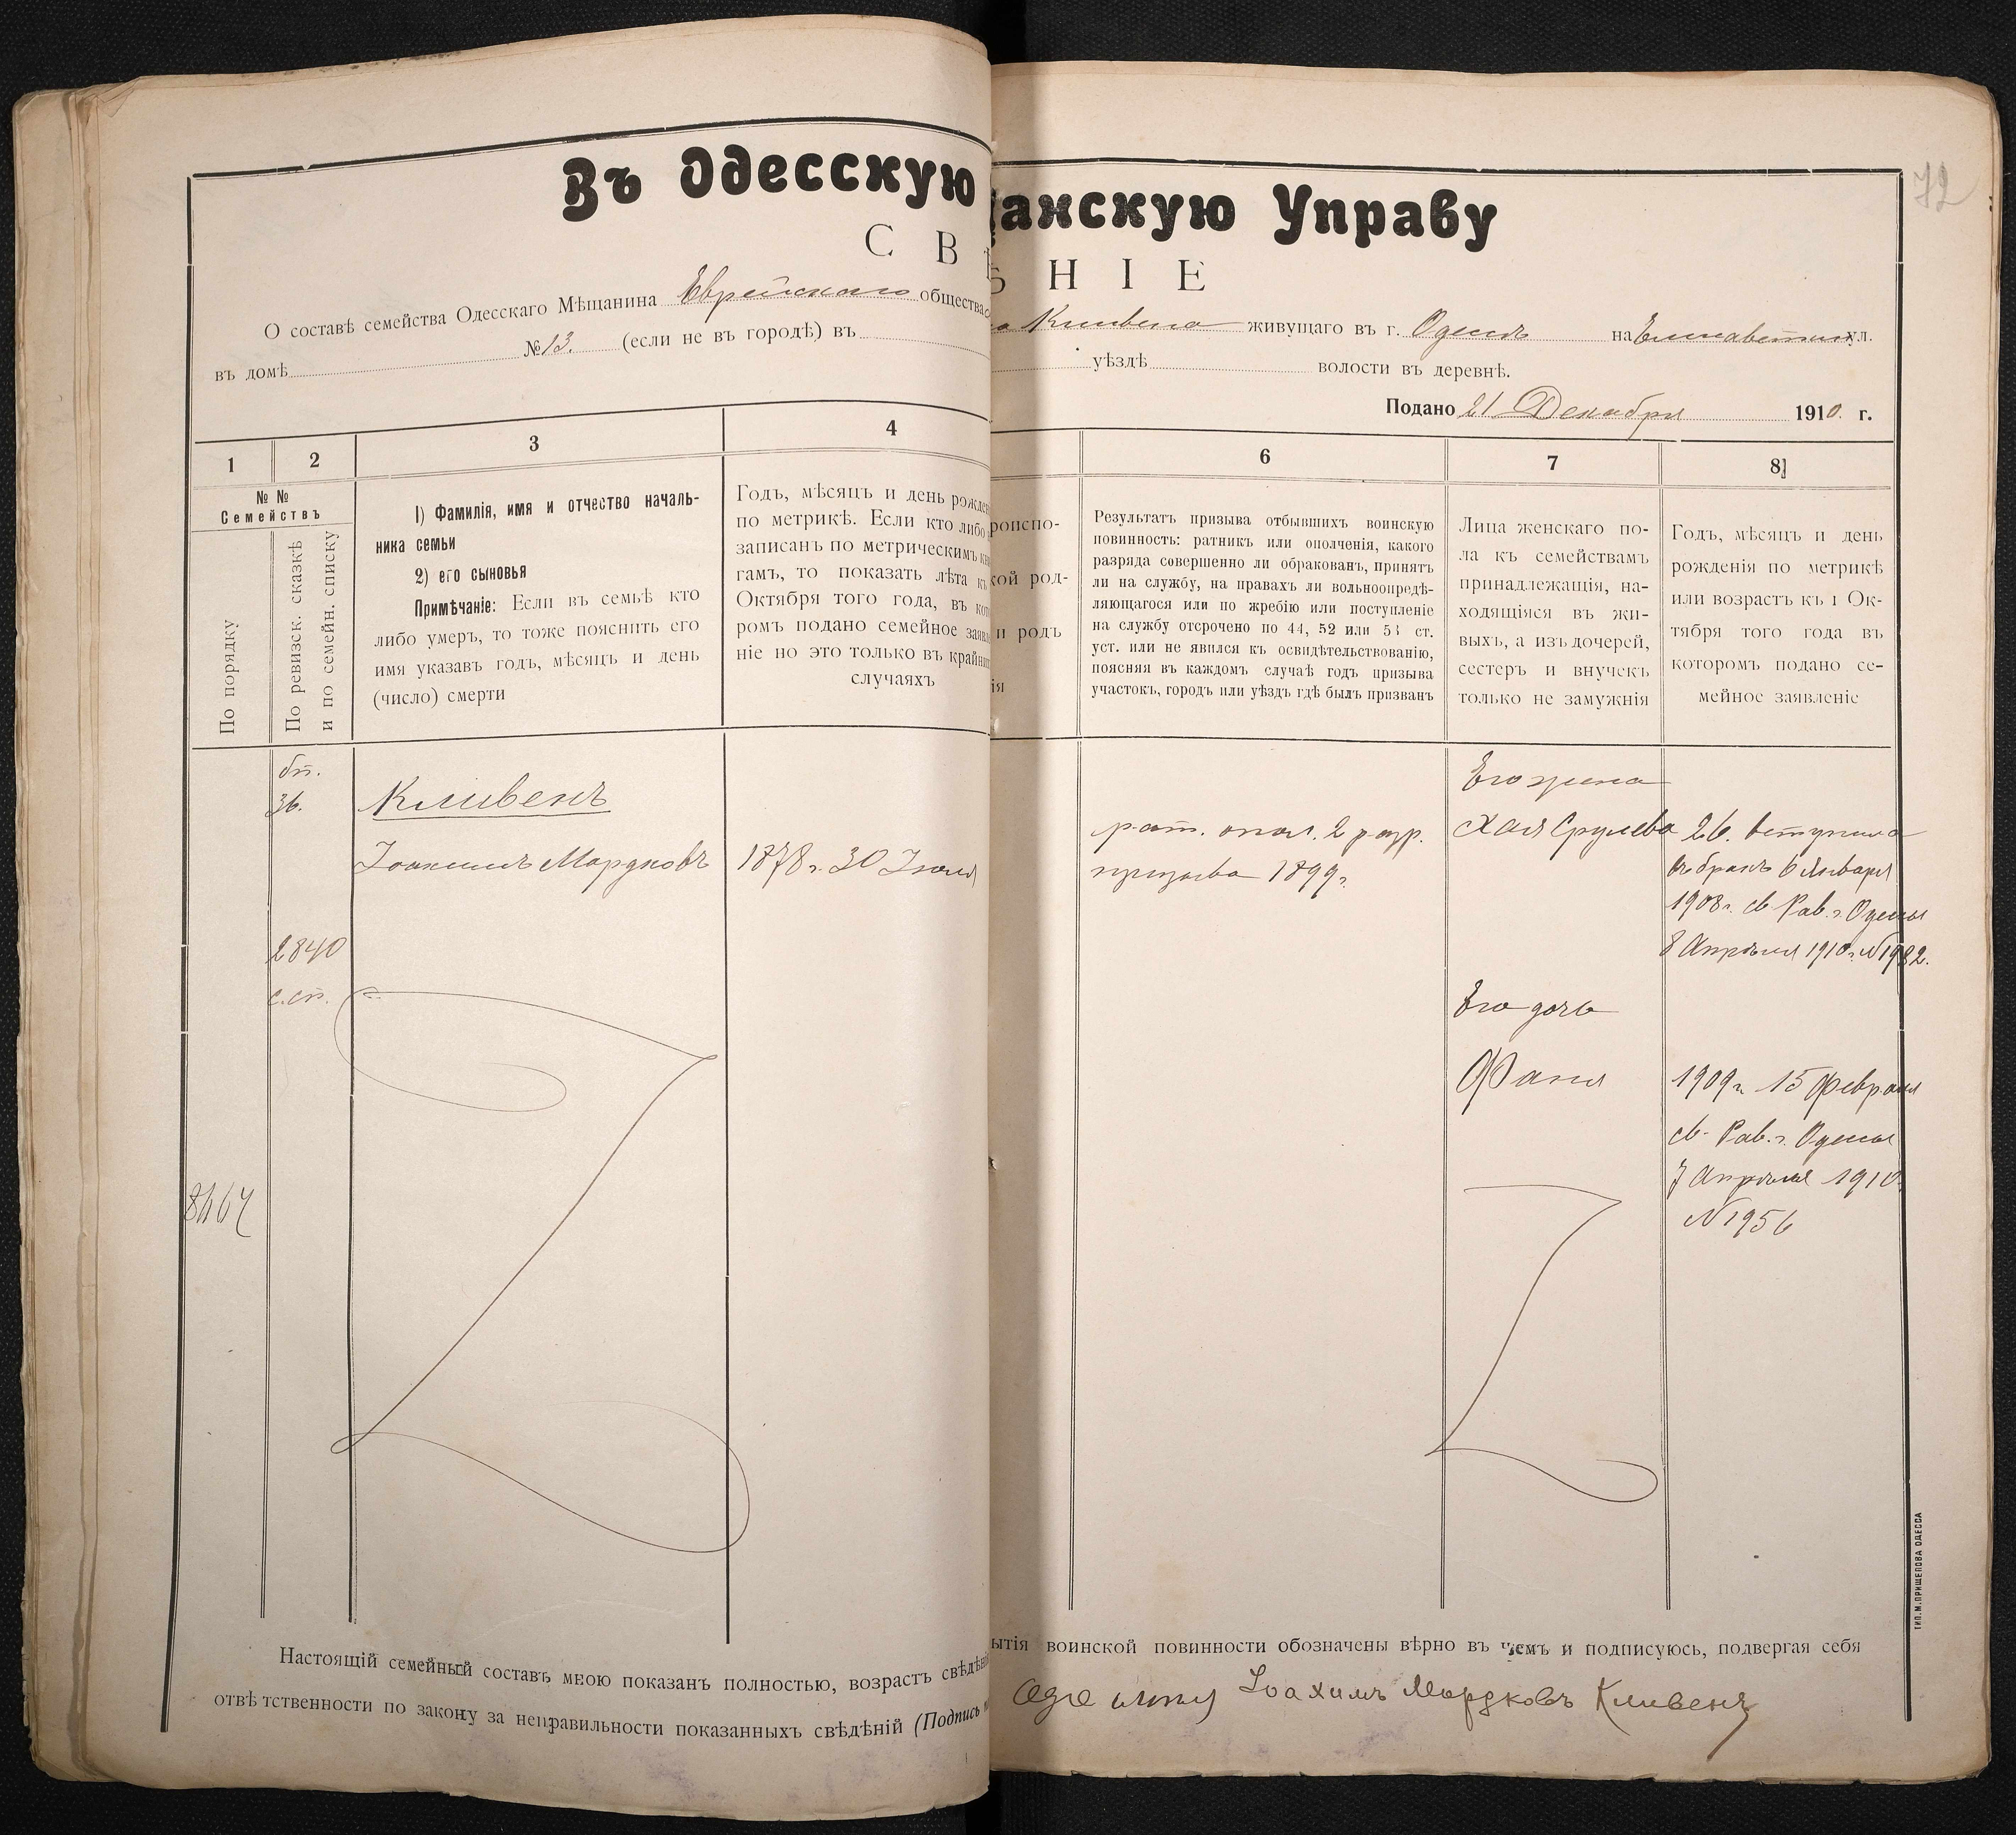 72
Въ Одесскую
щанскую Управу
С В
Ѣ Н І Е
О составѣ семейства Одесскаго Мѣщанина Еврейскаго общества
Кливена живущаго въ г. Одессѣ на Елисаветин ул.
въ домѣ № 13. (если не въ городѣ) въ
уѣздѣ волости въ деревнѣ.
Подано 21 Декабря 1910 г.
1 2 3 4
6 7 8
№ №
Семействъ
По порядку
По ревизск. сказкѣ
и по семейн. списку
1) Фамилія, имя и отчество началь-
ника семьи
2) его сыновья
Примѣчаніе: Если въ семьѣ кто
либо умеръ, то тоже пояснить его
имя указавъ годъ, мѣсяцъ и день
(число) смерти
Годъ, мѣсяцъ и день рожде
по метрикѣ. Если кто либо
записанъ по метрическимъ кн
гамъ, то показать лѣта къ
Октября того года, въ кот
ромъ подано семейное заявл
ніе но это только въ крайни
случаяхъ
роиспо-
кой род-
и родъ
ія
Результатъ призыва отбывшихъ воинскую
повинность: ратникъ или ополченія, какого
разряда совершенно ли обракованъ, принятъ
ли на службу, на правахъ ли вольноопредѣ-
ляющагося или по жребію или поступленіе
на службу отсрочено по 44, 52 или 53 ст.
уст. или не явился къ освидѣтельствованію,
поясняя въ каждомъ случаѣ годъ призыва
участокъ, городъ или уѣздъ гдѣ былъ призванъ
Лица женскаго по-
ла къ семействамъ
принадлежащія, на-
ходящіяся въ жи-
выхъ, а изъ дочерей,
сестеръ и внучекъ
только не замужнія
Годъ, мѣсяцъ и день
рожденія по метрикѣ
или возрастъ къ 1 Ок-
тября того года въ
которомъ подано се-
мейное заявленіе
36.
Кливенъ
Іоахимъ Мордковъ
1878 г. 30 Іюля
2840
с.сп.
рат. опол. 2 разр.
призыва 1899 г.
Его жена
Хая Срулева
26. вступила
въ бракъ 6 Января
1908 г. св. Рав. г. Одессы
8 Апрѣля 1910 г. № 1982.
Его дочь
Фаня
1909 г. 15 Февраля
св. Рав. г. Одессы
7 Апрѣля 1910
№ 1956
Настоящій семейный составъ мною показанъ полностью, возрастъ свѣдѣні
ытія воинской повинности обозначены вѣрно въ чемъ и подписуюсь, подвергая себя
отвѣтственности по закону за неправильности показанныхъ свѣдѣній (Подпись
Іоахимъ Мордковъ Кливенъ
ТИП. М. ПРИЩЕПОВА ОДЕССА